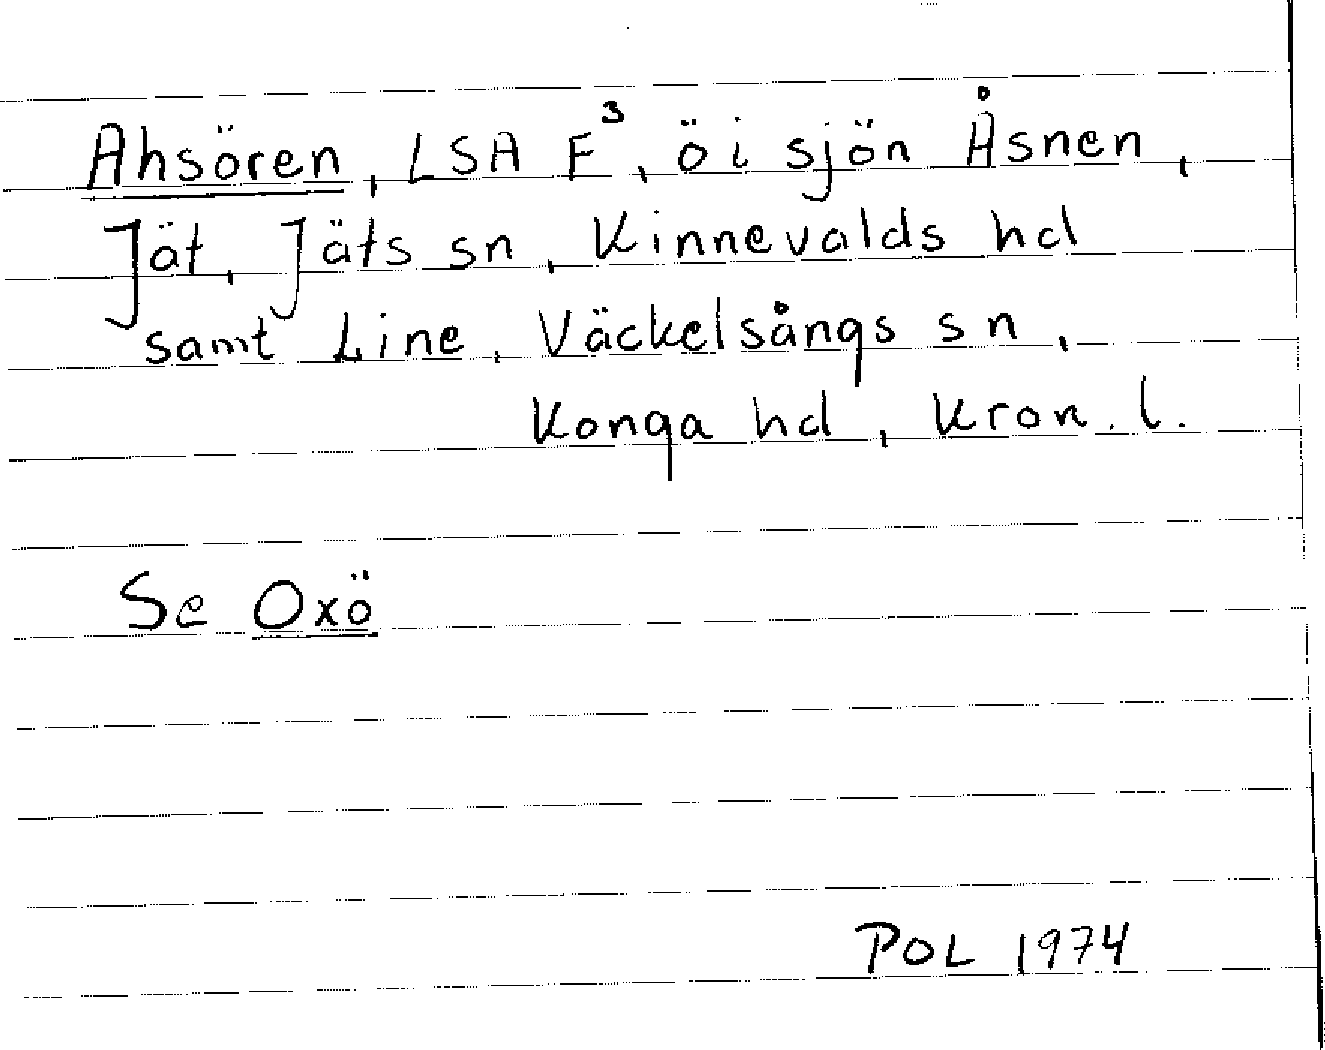 Ahsören, LSA F³, ö i sjön Åsnen,
Jät, Jäts sn, Kinnevalds hd
samt Line, Väckelsångs sn,
Konga hd, Kron. l.
Se Oxö
POL 1974